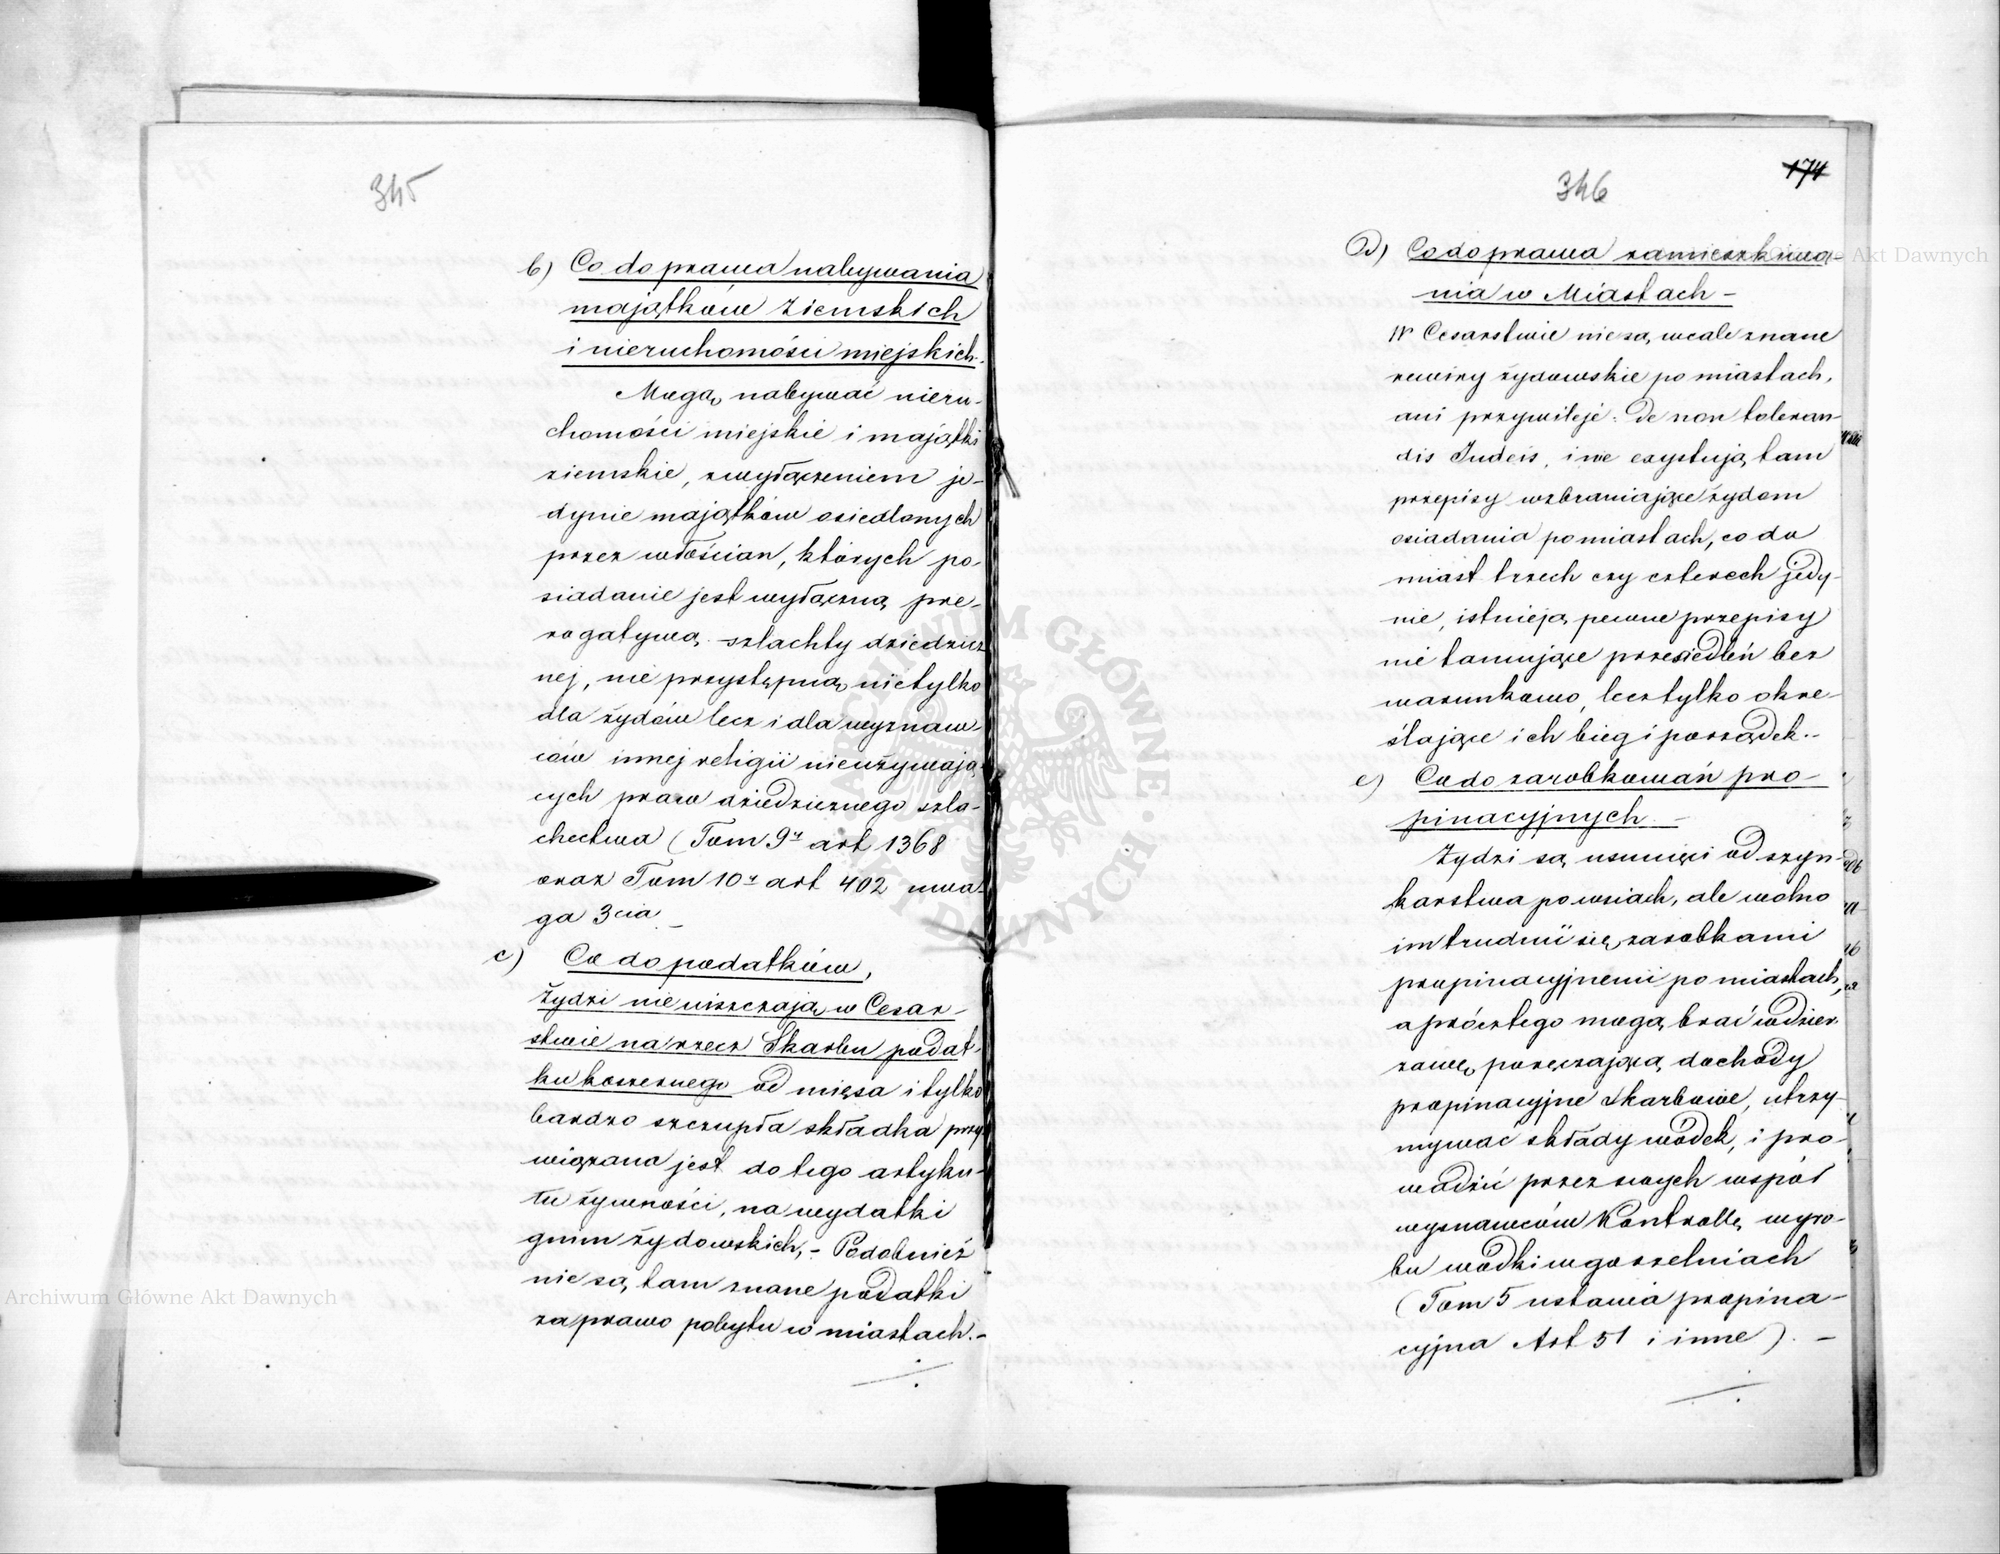 345
b) Co do prawa nabywania
majątków Ziemskich
i nieruchomości miejskich.
Mogą nabywać nieru-
chomości miejskie i majątki
ziemskie, z wyłączeniem je-
dynie majątków osiedlonych
przez włościan, których po-
siadanie jest wyłączną pre-
rogatywą szlachty dziedzicz
nej, nie przystępną nietylko
dla żydów lecz i dla wyznaw-
ców innej religii nieużywają-
cych praw dziedzicznego szla-
chectwa (Tom 9y art 1368
oraz Tom 10y art 402 uwa-
ga 3cia. –
c) Co do podatków,
Żydzi nie uiszczają w Cesar-
stwie na rzecz Skarbu podat-
ku koszernego od mięsa i tylko
bardzo szczupła składka przy
wiązana jest do tego artyku-
łu żywności, na wydatki
gmin żydowskich, – Podobnież
nie są tam znane podatki
za prawo pobytu w miastach. –
174
346
d) Co do prawa zamieszkiwa-
nia w Miastach –
W Cesarstwie nie są wcale znane
rewiry żydowskie po miastach,
ani przywileje: De non toleran-
dis Judeis, i nie exystują tam
przepisy wzbraniające żydom
osiadania po miastach, co do
miast trzech czy czterech jedy-
nie, istnieją pewne przepisy
nie tamujące przesiedleń bez
warunkowo, lecz tylko okre-
ślające ich bieg i porządek. –
e) Co do zarobkowań pro-
pinacyjnych. –
Żydzi są usunięci od szyn-
karstwa po wsiach, ale wolno
im trudnić się zarobkami
propinacyjnemi po miastach,
a prócz tego mogą brać w dzier
żawę, poręczającą dochody
propinacyjne skarbowe, utrzy-
mywać składy wódek, i pro-
wadzić przez swych współ
wyznawców Kontrollę wyro-
bu wódki w gorzelniach
(Tom 5 ustawa propina-
cyjna Art 51 i inne). –
Archiwum Główne Akt Dawnych
Akt Dawnych
ARCHIWUM GŁÓWNE AKT DAWNYCH